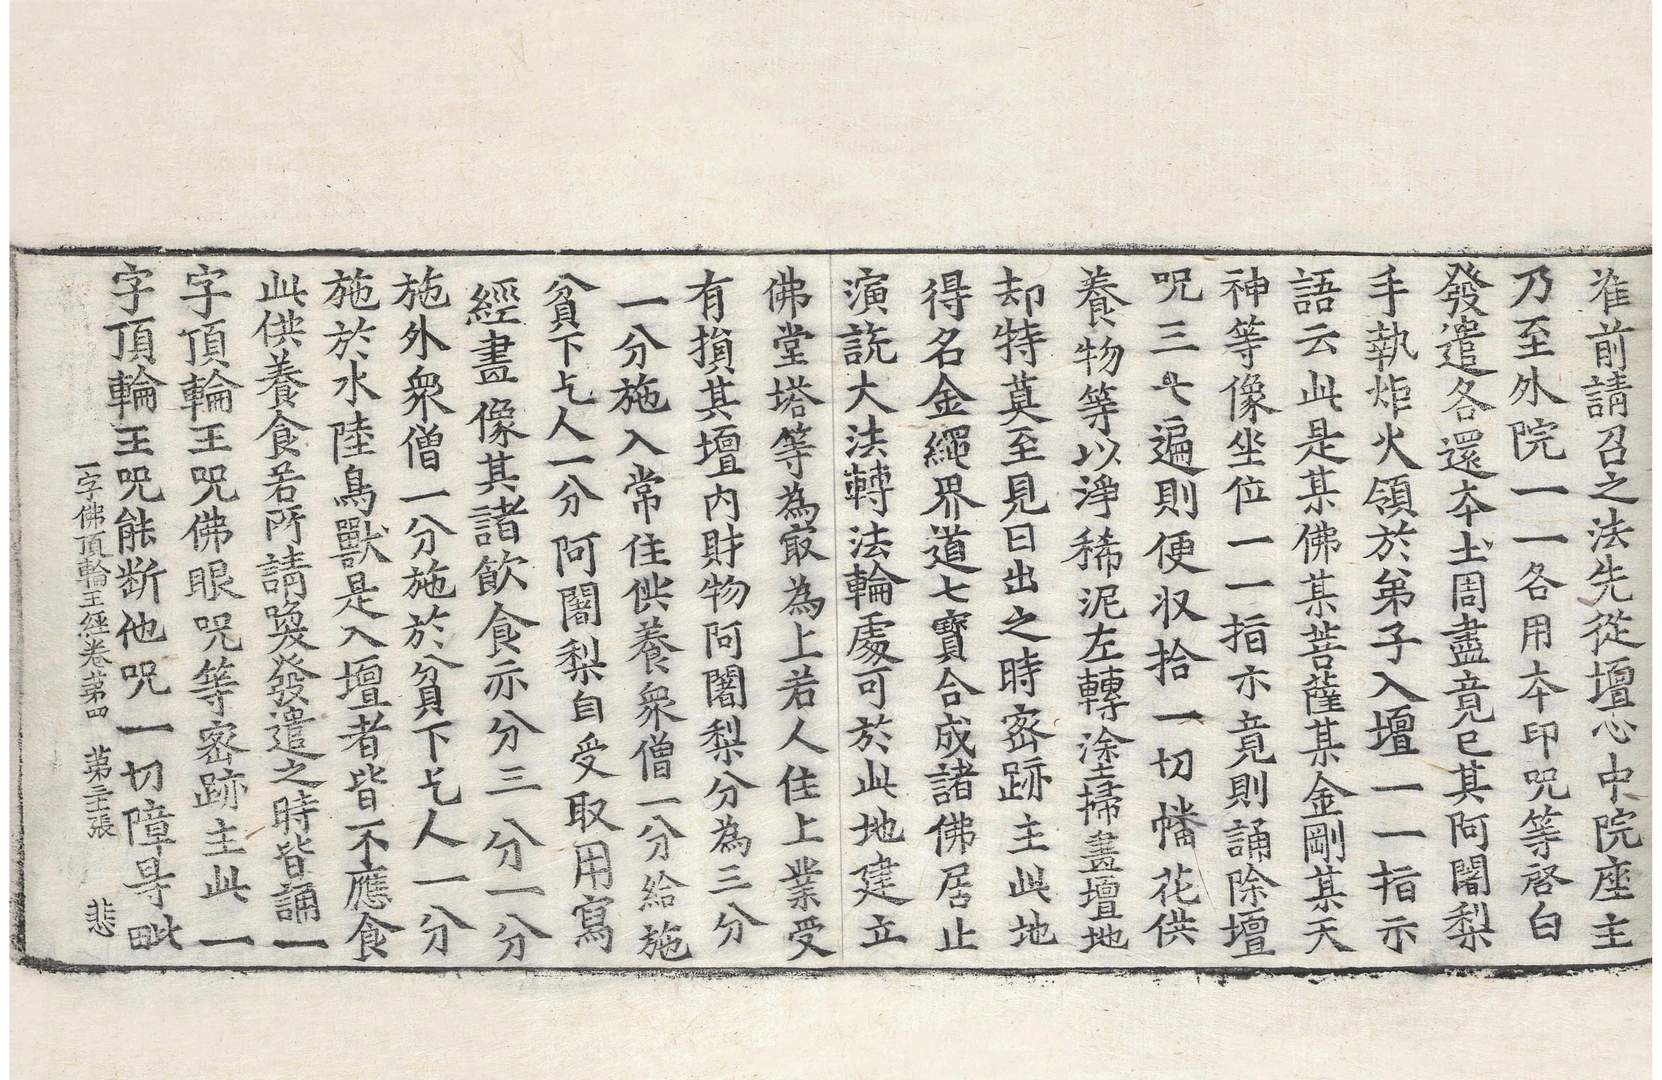 准前請召之法先從壇心中院座主
乃至外院一一各用本印呪等啓白
發遣各還本土周盡竟已其阿闍梨
手執炬火領於弟子入壇一一指示
語云此是某佛某菩薩某金剛某天
神等像坐位一一指示竟則誦除壇
呪三七遍則便收拾一切幡花供
養物等以淨稀泥左轉塗掃畫壇地
却特莫至見日出之時密跡主此地
得名金繩界道七寶合成諸佛居止
演説大法轉法輪處可於此地建立
佛堂塔等為最為上若人住上業受
有損其壇內財物阿闍梨分為三分
一分施入常住供養衆僧一分給施
貧下乞人一分阿闍梨自受取用寫
經畫像其諸飲食亦分三分一分
施外衆僧一分施於貧下乞人一分
施於水陸鳥獸是入壇者皆不應食
此供養食若所請喚發遣之時皆誦一
字頂輪王呪佛眼呪等密跡主此一
字頂輪王呪能斷他呪一切障㝵毗
一字佛頂輪王經卷第四 第三張 悲